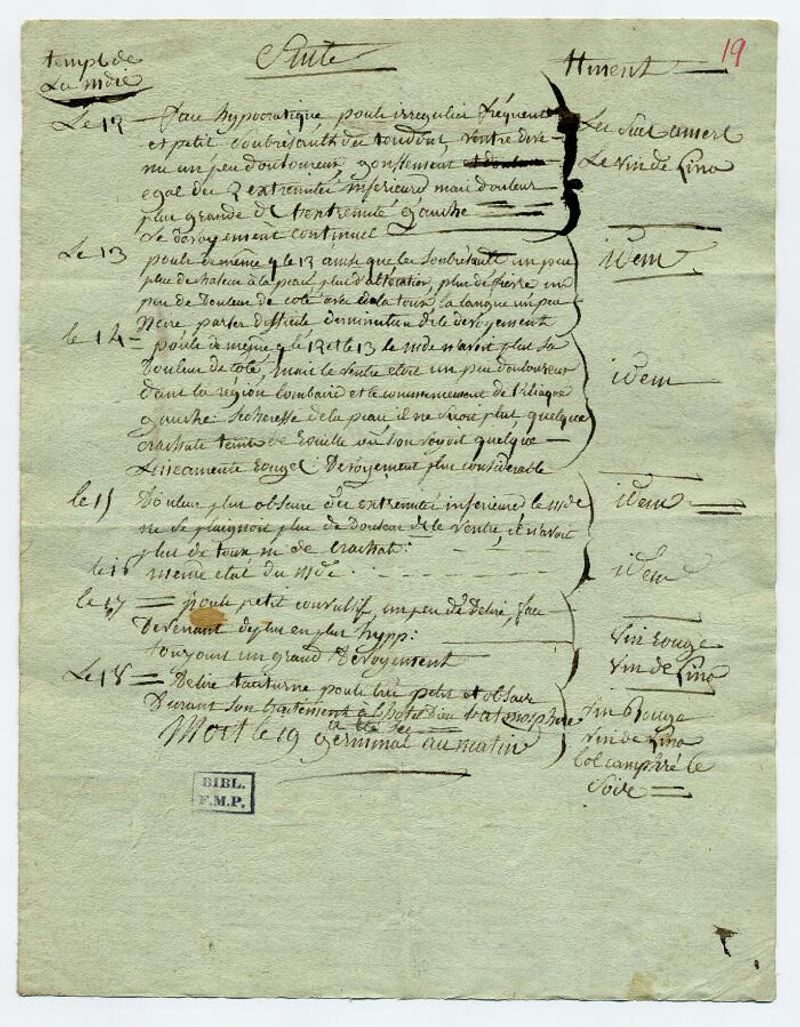 19
temps de
La mdie
Suite
ttment
Le 12 — face hypocratique, pouls irregulier fréquent
et petit soubrésauts des tendons, ventre deve-
nu un peu douloureux, gonflement
egal des 2 extremités inferieures mais douleur
plus grande de l'extremité gauche
Le devoyement continuel
Les sucs amers
Le vin de Kina
Le 13 pouls de même q le 12 ainsi que les soubrésauts un peu
plus de chaleur à la peau, plus d'altération, plus de fievre un
peu de Douleur de coté avec de la toux la langue un peu
Noire, parler difficile diminution de le devoyement
idem
le 14 = pouls de même q le 12 et le 13 le mde n'avoit plus sa
Douleur de coté, mais le ventre etoit un peu douloureux
dans la région lombaire et le commencement de l'iliaque
gauche: secheresse de la peau il ne suoit plus quelques
crachats teints de Rouille où l'on voyoit quelque —
Lineaments Rouges: Devoyement plus considerable
idem
le 15 Douleur plus obscure des extremités inferieures le mde
ne se plaignoit plus de douleur de le ventre, il n'avoit
plus de toux ni de crachats:
idem
le 16 même etat du mde.
idem
le 17 = pouls petit convulsif, un peu de Delire, face
Devenant de plus en plus hypp:
toujours un grand Devoyement
vin Rouge
vin de Kina
Le 18 = Delire taciturne pouls très petit et obscur
Durant son traitement à l'hotel Dieu l'atmosphere
a été sec
Mort le 19 germinal au matin
vin Rouge
vin de Kina
bol camphré le
Soir
BIBL.
F.M.P.